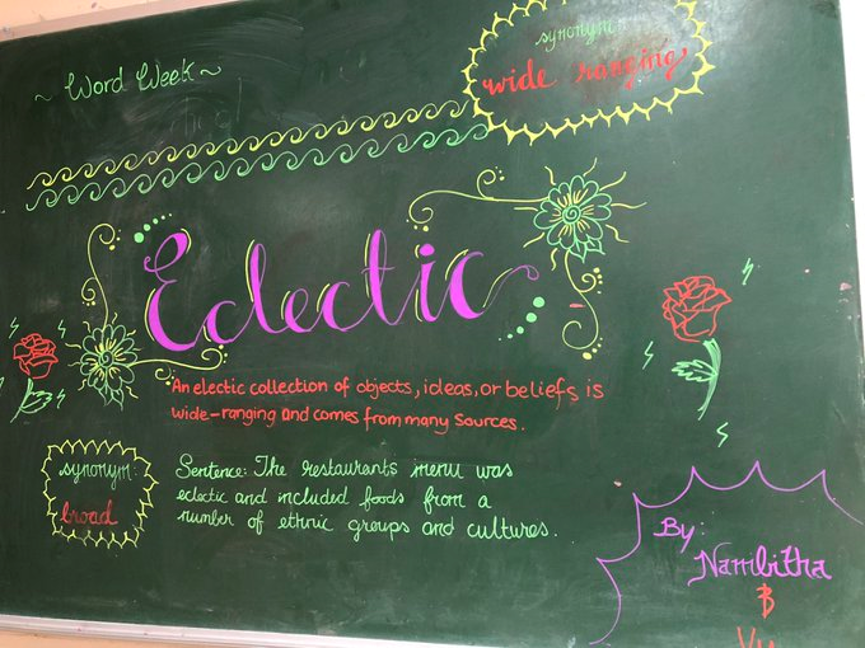 ~ Word Week ~
synonym:
wide ranging
Eclectic
An electic collection of objects, ideas, or beliefs is
wide-ranging and comes from many Sources.
synonym:
broad
Sentence: The restaurants menu was
eclectic and included foods from a
number of ethnic groups and cultures.
By:
Nambitha
B